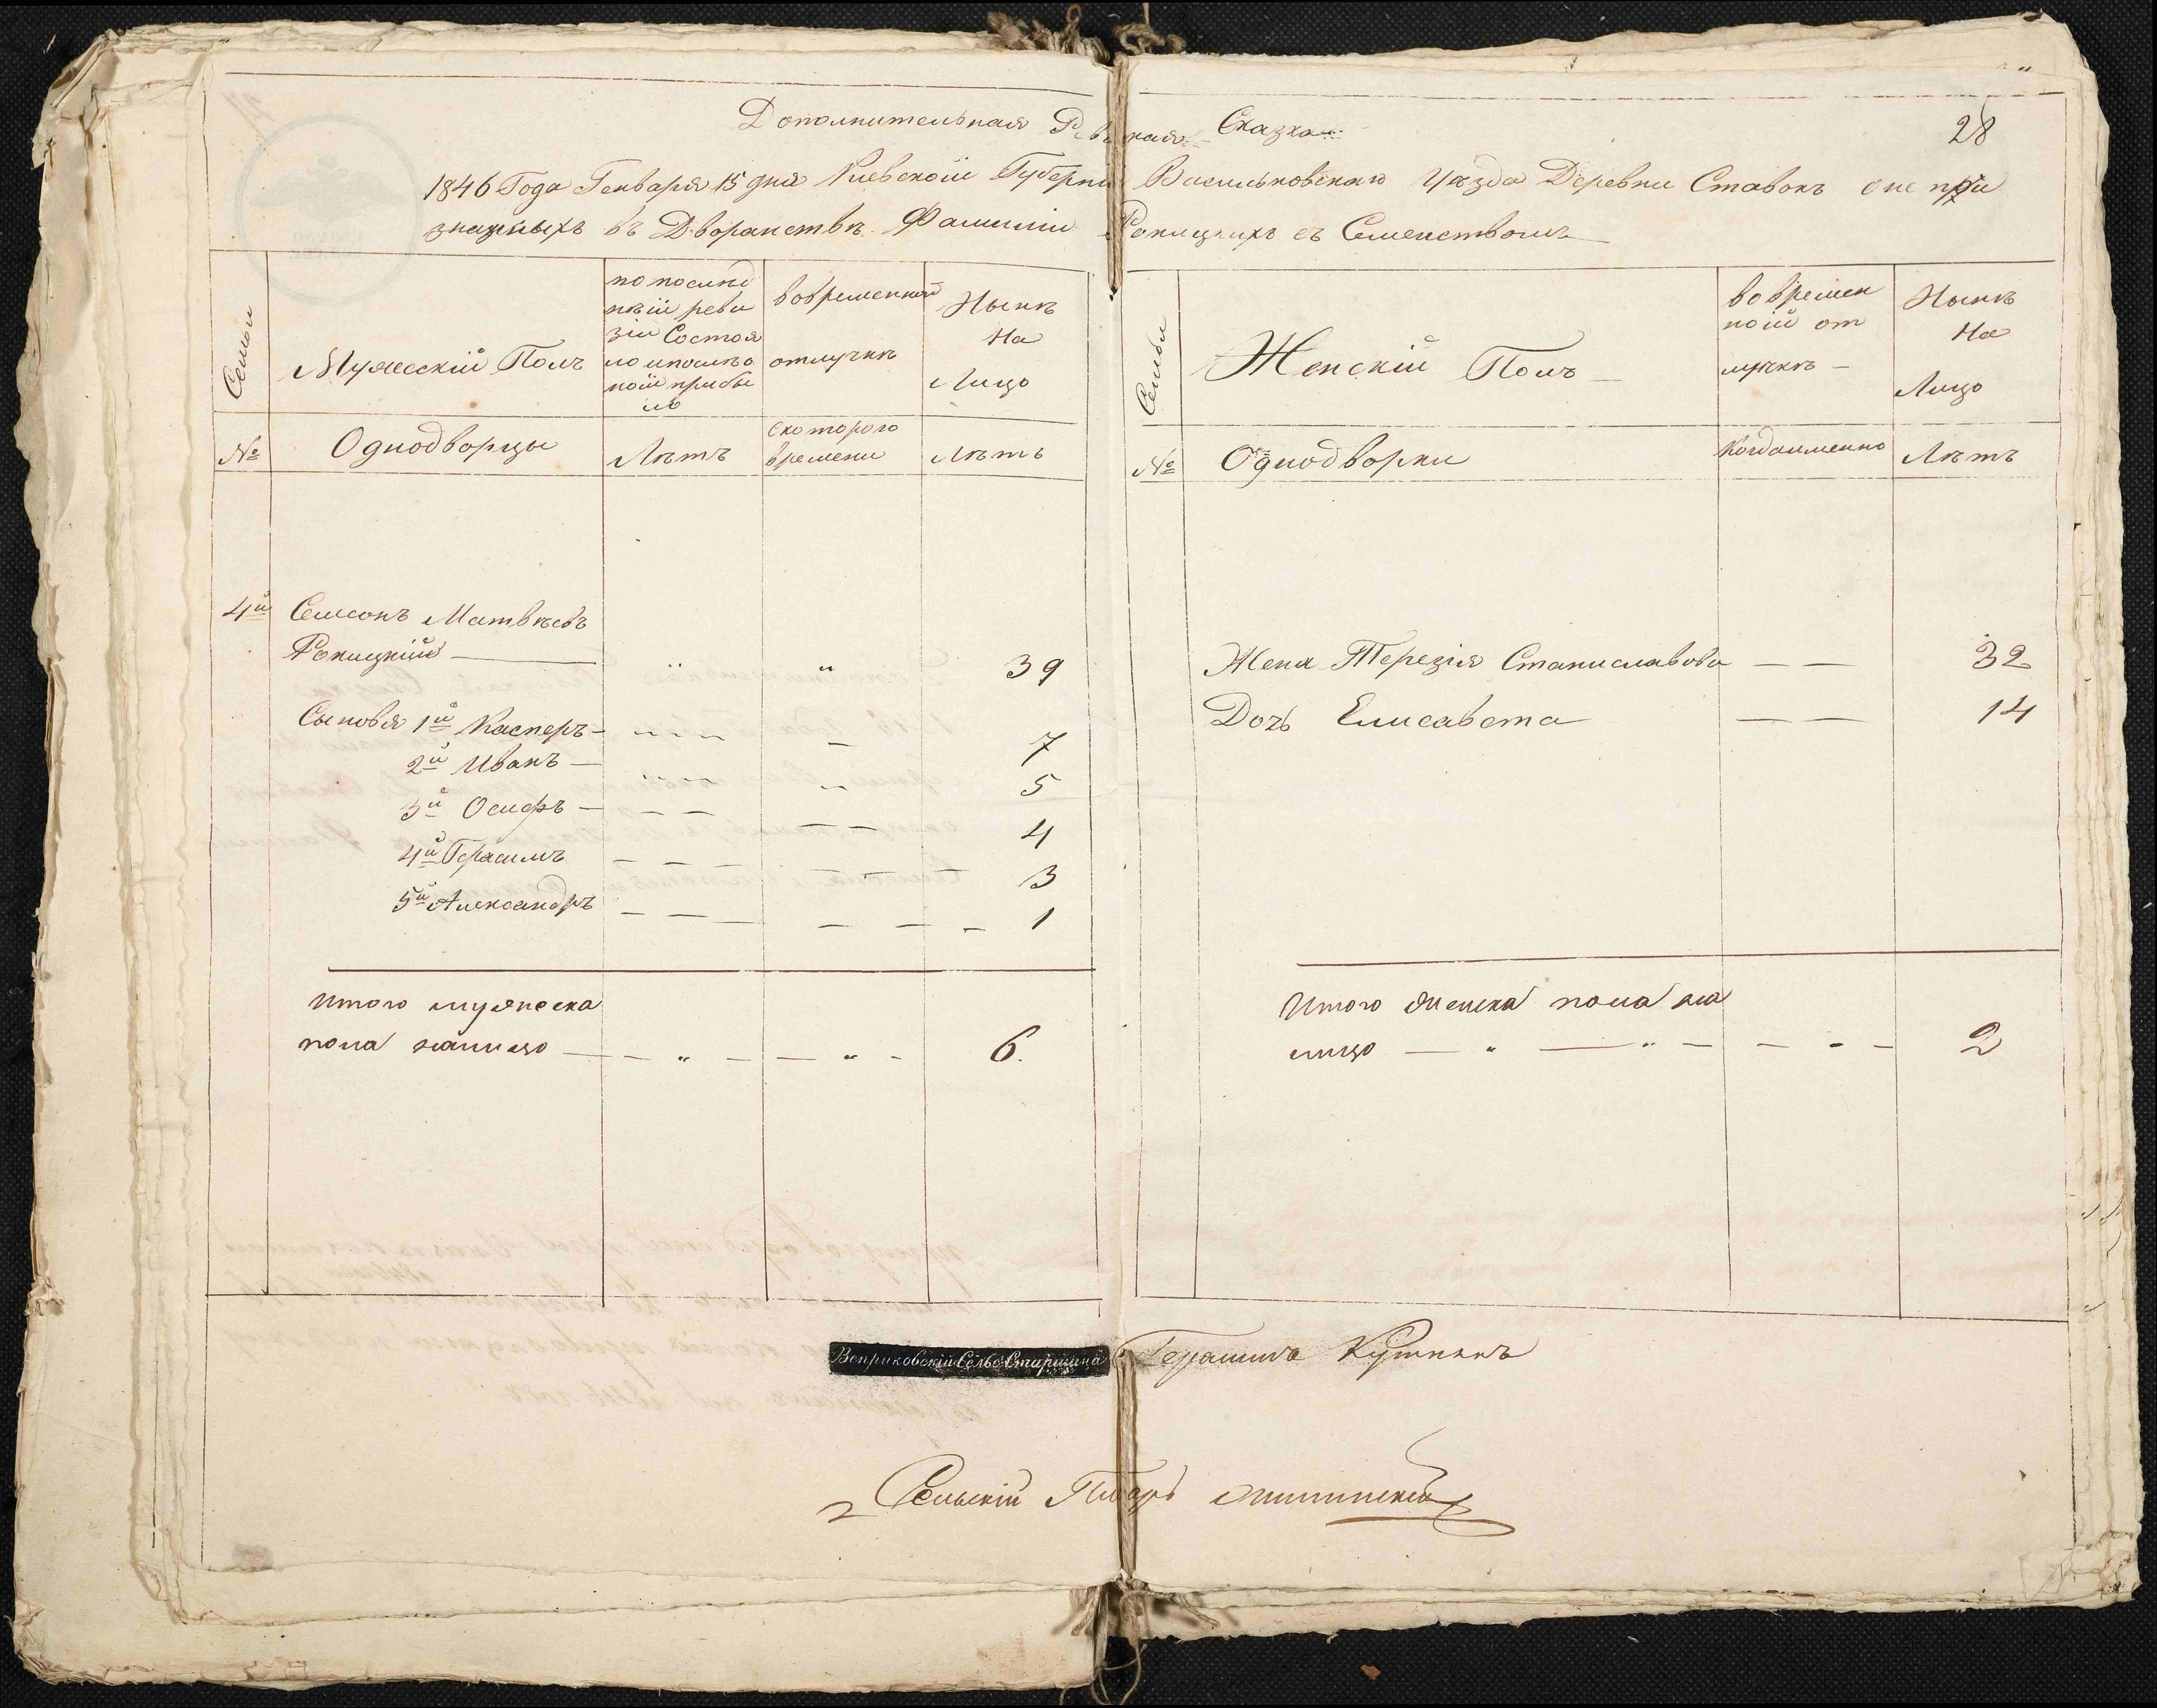 Дополнительная Ревизкая Сказка
28
1846 Года Генваря 15 дня Киевской Губерніи Васильковскаго Уезда Деревни Ставокъ о не при
знаныхъ въ Дворанствѣ Фамиліи Рокицкихъ съ Семенством
Семьи
Мужесскій Полъ
по послѣд
нѣй реви
зіи Состоя
ло и послѣ о
ной прибы
ло
во временной
отлучкѣ
Нынѣ
На
Лицо
№
Однодворцы
Лѣтъ
с которого
времени
Лѣтъ
4й
Семионъ Матвѣевъ
Рокицкій
39
Сыновя 1й Касперъ
7
2й Иванъ
5
3й Осифъ
4
4й Герасимъ
3
5й Александръ
1
Итого мужеска
пола налицо
6.
Семьи
Женскій Полъ
во времен
ной от
лучкѣ
Нынѣ
На
Лицо
№
Однодворки
Когда именно
Лѣтъ
Жена Терезія Станиславова
32
Дочь Елисавета
14
Итого женска пола на
лицо
2
Веприковскій Сельс Старшина Герасимъ
Сельскій Писарь